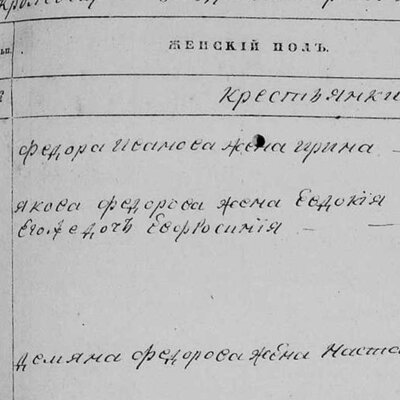 ЖЕНСКІЙ ПОЛЪ.
Крестьянки
Федора Иванова жена Ирина —
Якова Федорова жена Евдокія
Его дочь Ефросинія — —
Демяна Федорова жена Наста